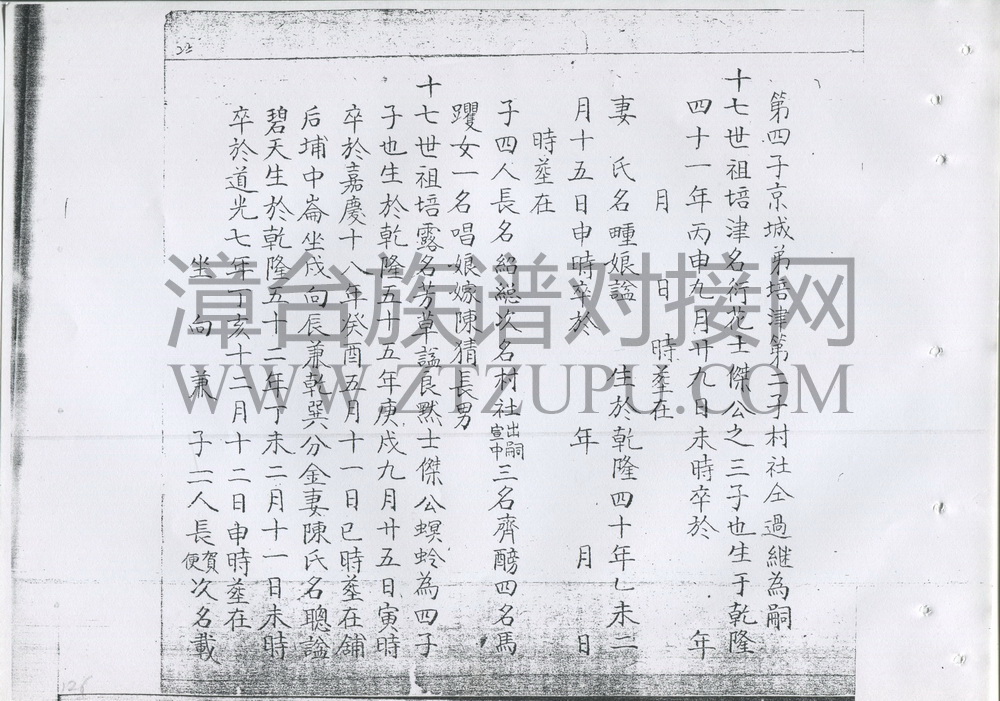 第四子京城弟培津第二子村社仝過継為嗣
十七世祖培津名行花士傑公之三子也生于乾隆
四十一年丙申九月廿九日未時卒於　　年
月　　日　　時塟在
妻　氏名畽娘謚　　生於乾隆四十年乚未二
月十五日申時卒於　　年　　月　　日
時塟在
子四人長名紹総次名村社出嗣宣中三名齊醅四名馬
躩女一名唱娘嫁陳猜長男
十七世祖培露名芳草謚良默士傑公螟蛉為四子
子也生於乾隆五十五年庚戍九月廿五日寅時
卒於嘉慶十八年癸酉五月十一日巳時塟在鋪
后埔中崙坐戍向辰兼乾巽分金妻陳氏名聰謚
碧天生於乾隆五十二年丁未二月十一日未時
卒於道光七年丁亥十二月十二日申時塟在
坐　向　兼　子二人長賀便次名載
漳台族谱对接网
WWW.ZTZUPU.COM